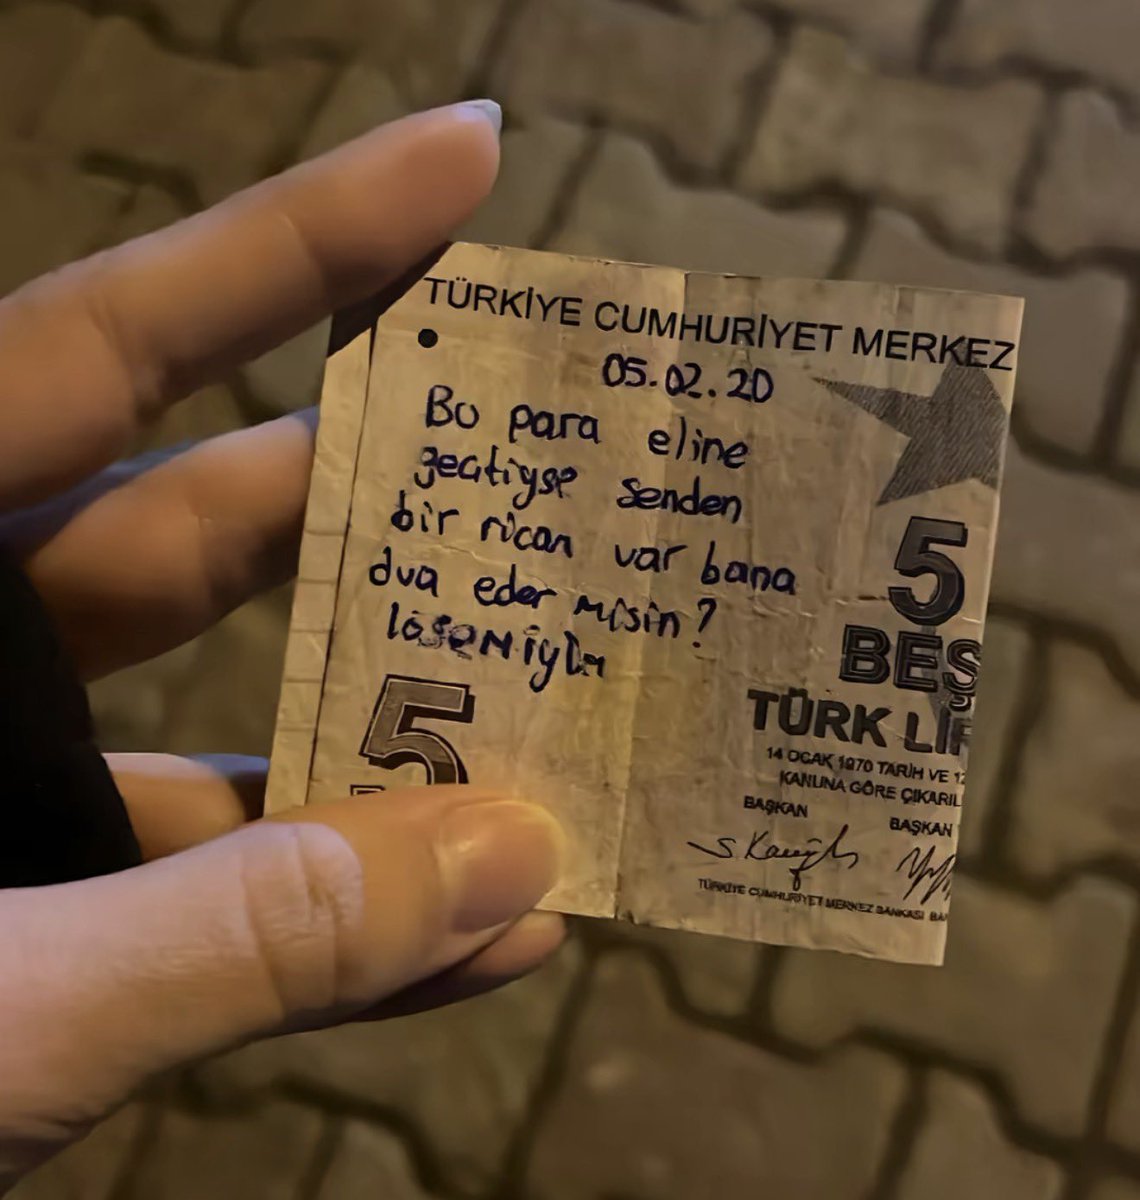 TÜRKİYE CUMHURİYET MERKEZ
05.02.20
Bu para eline
geçtiyse senden
bir ricam var bana
dua eder misin?
lösemiyim
5
5
BEŞ
TÜRK LİR
14 OCAK 1970 TARİH VE 12
KANUNA GÖRE ÇIKARIL
BAŞKAN
BAŞKAN
TÜRKİYE CUMHURİYET MERKEZ BANKASI BA